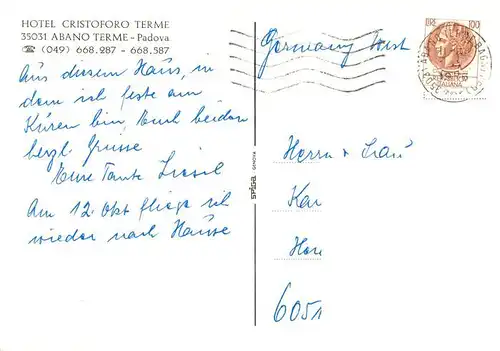 HOTEL CRISTOFORO TERME
35031 ABANO TERME - Padova
☎ (049) 668.287 - 668.587
Aus diesem Haus, in
dem ich feste am
Kuren bin Euch beiden
herzl. Grüsse
Eure Tante Liesel
Am 12. Okt fliege ich
wieder nach Hause
SPADA GENOVA
Germany West
LIRE 100
Herrn + Frau
Kar
Hor
6051